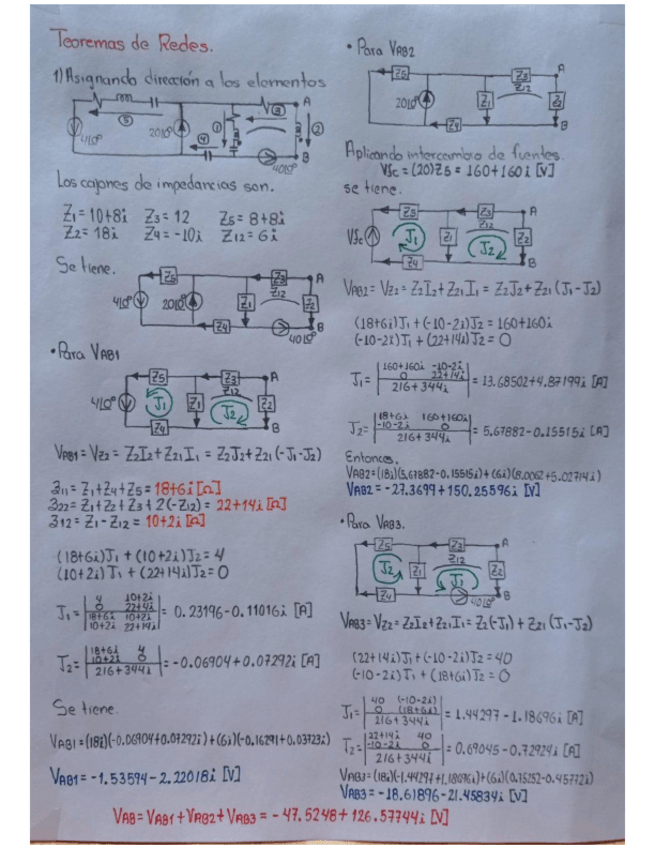 Teoremas de Redes.
1) Asignando dirección a los elementos
4|0° 20|0° 40|0° A B
① ② ③ ④ ⑤
Los cajones de impedancias son.
Z1 = 10+8i Z3 = 12 Z5 = 8+8i
Z2 = 18i Z4 = -10i Z12 = 6i
Se tiene.
Z5 Z3 A
4|0° 20|0° Z1 Z12 Z2
Z4 40|0° B
• Para VAB1
Z5 Z3 A
4|0° J1 Z1 Z12 J2 Z2
Z4 B
VAB1 = VZ2 = Z2I2 + Z21I1 = Z2J2 + Z21(-J1-J2)
z11 = Z1+Z4+Z5 = 18+6i [Ω]
z22 = Z1+Z2+Z3+2(-Z12) = 22+14i [Ω]
z12 = Z1-Z12 = 10+2i [Ω]
(18+6i)J1 + (10+2i)J2 = 4
(10+2i)J1 + (22+14i)J2 = 0
J1 = |4 10+2i
0 22+14i|
|18+6i 10+2i
10+2i 22+14i| = 0.23196-0.11016i [A]
J2 = |18+6i 4
10+2i 0|
216+344i = -0.06904+0.07292i [A]
Se tiene.
VAB1 = (18i)(-0.06904+0.07292i)+(6i)(-0.16291+0.03723i)
VAB1 = -1.53594-2.22018i [V]
• Para VAB2
Z5 Z3 A
20|0° Z1 Z12 Z2
Z4 B
Aplicando intercambio de fuentes.
VSc = (20)Z5 = 160+160i [V]
se tiene.
Z5 Z3 A
VSc J1 Z1 Z12 J2 Z2
Z4 B
VAB2 = VZ2 = Z2I2 + Z21I1 = Z2J2 + Z21(J1-J2)
(18+6i)J1 + (-10-2i)J2 = 160+160i
(-10-2i)J1 + (22+14i)J2 = 0
J1 = |160+160i -10-2i
0 22+14i|
216+344i = 13.68502+4.87199i [A]
J2 = |18+6i 160+160i
-10-2i 0|
216+344i = 5.67882-0.15515i [A]
Entonces.
VAB2 = (18i)(5.67882-0.15515i)+(6i)(8.0062+5.02714i)
VAB2 = -27.3699+150.25596i [V]
• Para VAB3.
Z5 Z3 A
J2 Z1 Z12 J1 Z2
Z4 40|0° B
VAB3 = VZ2 = Z2I2 + Z21I1 = Z2(-J1) + Z21(J1-J2)
(22+14i)J1 + (-10-2i)J2 = 40
(-10-2i)J1 + (18+6i)J2 = 0
J1 = |40 (-10-2i)
0 (18+6i)|
216+344i = 1.44297-1.18696i [A]
J2 = |22+14i 40
-10-2i 0|
216+344i = 0.69045-0.72924i [A]
VAB3 = (18i)(-1.44297+1.18696i)+(6i)(0.75252-0.45772i)
VAB3 = -18.61896-21.45834i [V]
VAB = VAB1 + VAB2 + VAB3 = -47.5248+126.57744i [V]